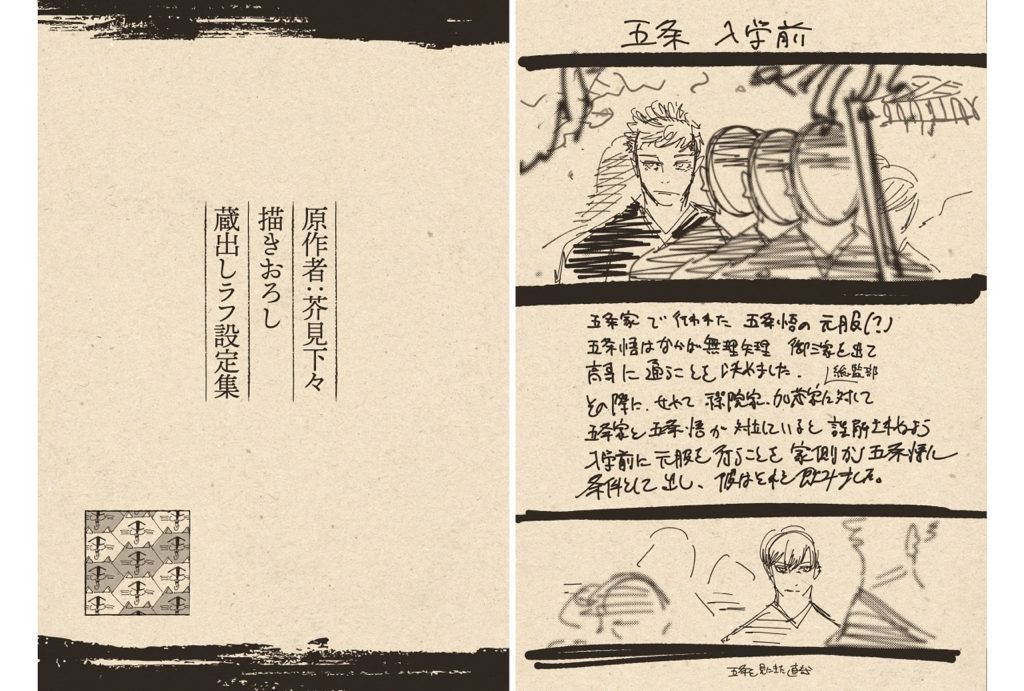 原作者:芥見下々
描きおろし
蔵出しラフ設定集
五条 入学前
五条家で行われた 五条悟の元服(?)
五条悟はなかば無理矢理 御三家を出て
高専に通うことを決めました。 総監部
その際に、せめて 禪院家、加茂家に対して
五条家と五条悟が対立していると誤解されぬよう
入学前に元服を行うことを 家側が五条悟に
条件として出し、彼はそれを飲みました。
五条を見にきた直哉